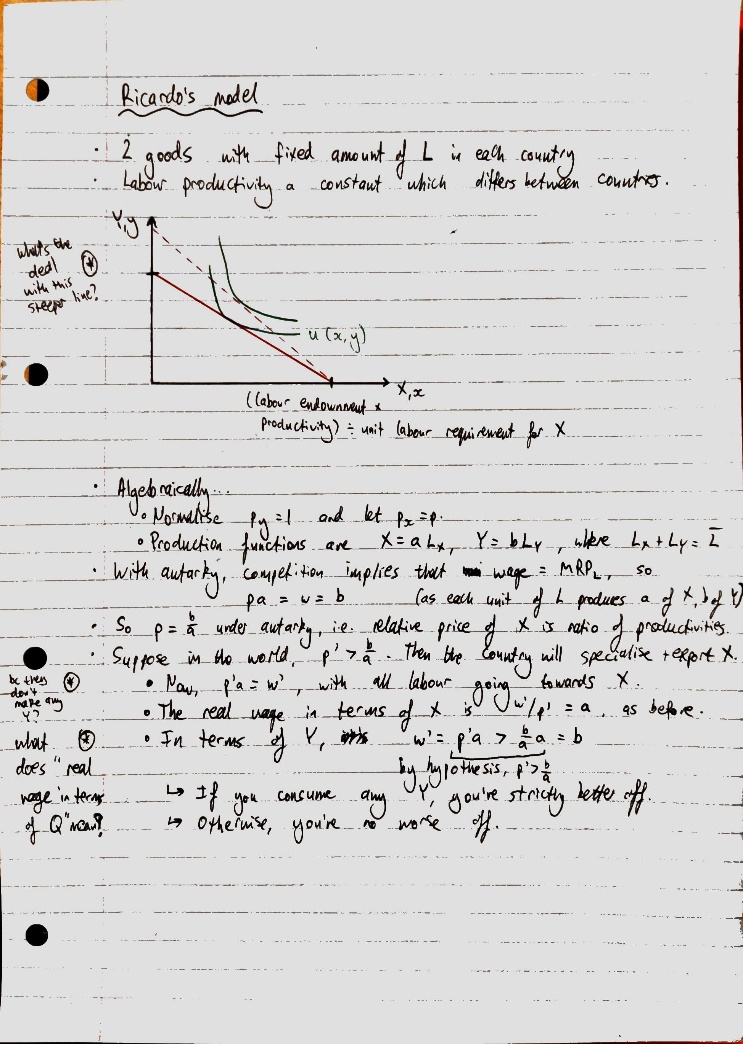 Ricardo's model
· 2 goods with fixed amount of L in each country
· Labour productivity a constant which differs between countries.
Y,y
what's the
deal
with this
steeper line?
(*)
u(x,y)
X,x
(labour endownment ×
productivity) ÷ unit labour requirement for X
· Algebraically...
• Normalise py = 1 and let px = p.
• Production functions are X = aLx, Y = bLY, where Lx + LY = L̄
· With autarky, competition implies that wage = MRPL, so
pa = w = b (as each unit of L produces a of X, b of Y)
· So p = b/a under autarky, i.e. relative price of X is ratio of productivities.
· Suppose in the world, p' > b/a. Then the country will specialise + export X.
bc they
don't
make any
Y?
(*)
• Now, p'a = w', with all labour going towards X.
• The real wage in terms of X is w'/p' = a, as before.
what (*)
does "real
wage in terms
of Q" mean?
• In terms of Y, w' = p'a > b/a a = b
by hypothesis, p' > b/a
↳ If you consume any Y, you're strictly better off.
↳ Otherwise, you're no worse off.